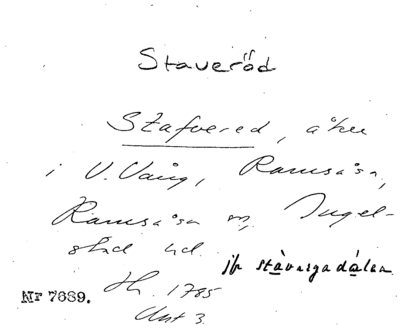 Staveröd
Stafvered, åker
i V. Vång, Ramsåsa,
Ramsåsa sn, Ingel-
stad hd.
jfr stàvaregadálen
Nr 7689. Hh. 1785
Akt 3.